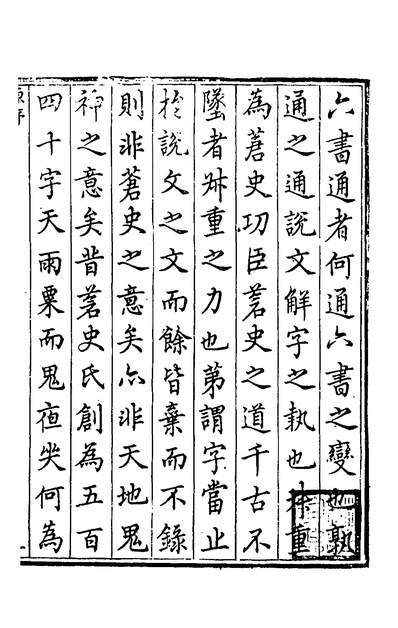 六書通者何通六書之變也孰
通之通說文解字之執也叔重
為蒼史功臣蒼史之道千古不
墜者叔重之力也第謂字當止
於說文之文而餘皆棄而不錄
則非蒼史之意矣亦非天地鬼
神之意矣昔蒼史氏創為五百
四十字天雨粟而鬼夜哭何為